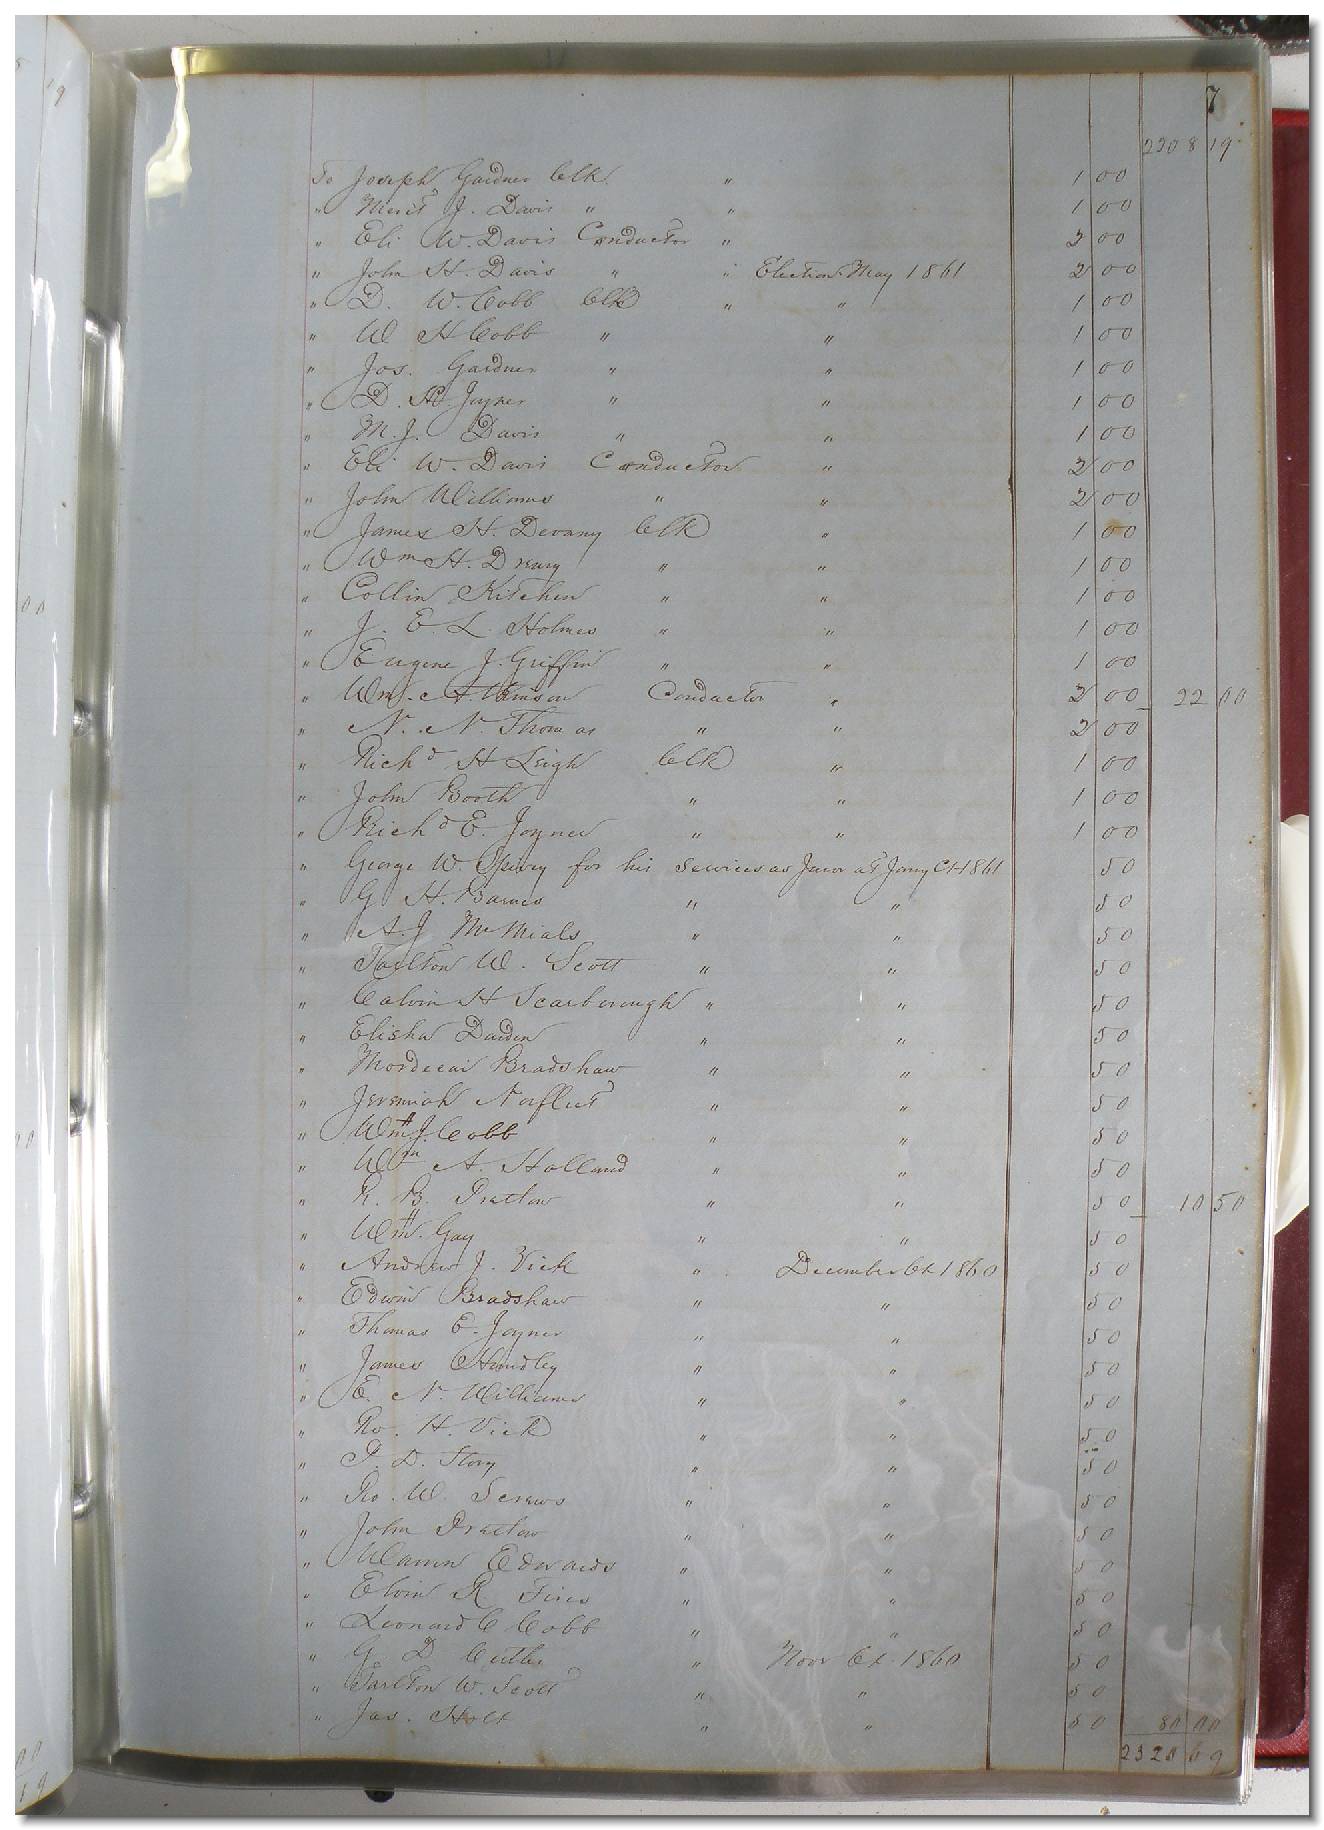 7
2308 19
To Joseph Gardner Clk. " 1 00
" Merit J. Davis " " 1 00
" Eli W. Davis Conductor " 2 00
" John H. Davis " " Election May 1861 2 00
" D. W. Cobb Clk " " 1 00
" W H Cobb " " 1 00
" Jos. Gardner " " 1 00
" D. H. Joyner " " 1 00
" M. J. Davis " " 1 00
" Eli W. Davis Conductor " 2 00
" John Williams " " 2 00
" James H. Devany Clk " 1 00
" Wm H. Drewry " " 1 00
" Collin Kitchen " " 1 00
" J. E L. Holmes " " 1 00
" Eugene J. Griffin " " 1 00
" Wm. Atkinson Conductor " 2 00 22 00
" N. N. Thomas " " 2 00
" Richd H Leigh Clk " 1 00
" John Booth " " 1 00
" Richd E. Joyner " " 1 00
" George W. Spivey for his services as Juror at Jany Ct 1861 50
" G H. Barnes " " 50
" A. J McMials " " 50
" Tarlton W. Scott " " 50
" Calvin H Scarborough " " 50
" Elisha Darden " " 50
" Mordecai Bradshaw " " 50
" Jeremiah Norfleet " " 50
" Wm J. Cobb " " 50
" Wm A. Holland " " 50
" R. B. Pretlow " " 50 10 50
" Wm. Gay " " 50
" Andrew J. Vick " December Ct 1860 50
" Edwin Bradshaw " " 50
" Thomas E. Joyner " " 50
" James Handley " " 50
" E. N. Williams " " 50
" Ro. H. Vick " " 50
" P. D. Story " " 50
" Ro. W. Screws " " 50
" John Pretlow " " 50
" Warren Edwards " " 50
" Elvin R " " 50
" Leonard C Cobb " " 50
" G. D Cutler " Novr Ct. 1860 50
" Tarlton W. Scott " " 50
" Jas. Holt " " 50 80 00
2320 69